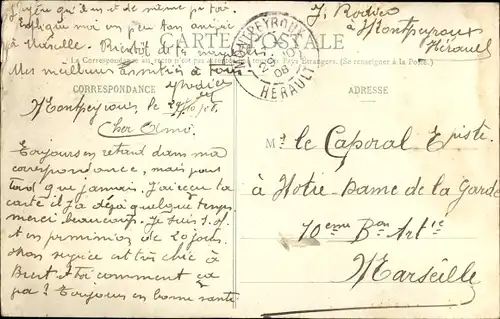 J'espère qu'il en est de même pour toi.
Explique moi un peu ton
à Marseille. Bientôt de
Mes meilleures amitiés à tous.
J. Rodier
à Montpeyroux
Hérault
CARTE POSTALE
MONTPEYROUX
HÉRAULT
La Correspondance au recto n'est pas acceptée par tous les Pays Étrangers. (Se renseigner à la Poste.)
CORRESPONDANCE
ADRESSE
Montpeyroux, le 29/10/08.
Cher Ami
Toujours en retard dans ma
correspondance, mais peut
tard que jamais. J'ai reçu la
carte il y a déjà quelque temps,
merci beaucoup. Je suis
et en permission de 20 jours.
Mon service est très chic à
et toi comment ça
va? Toujours en bonne santé
Mr le Caporal Episte.
à Notre-Dame de la Garde
10eme Bon Artie
Marseille